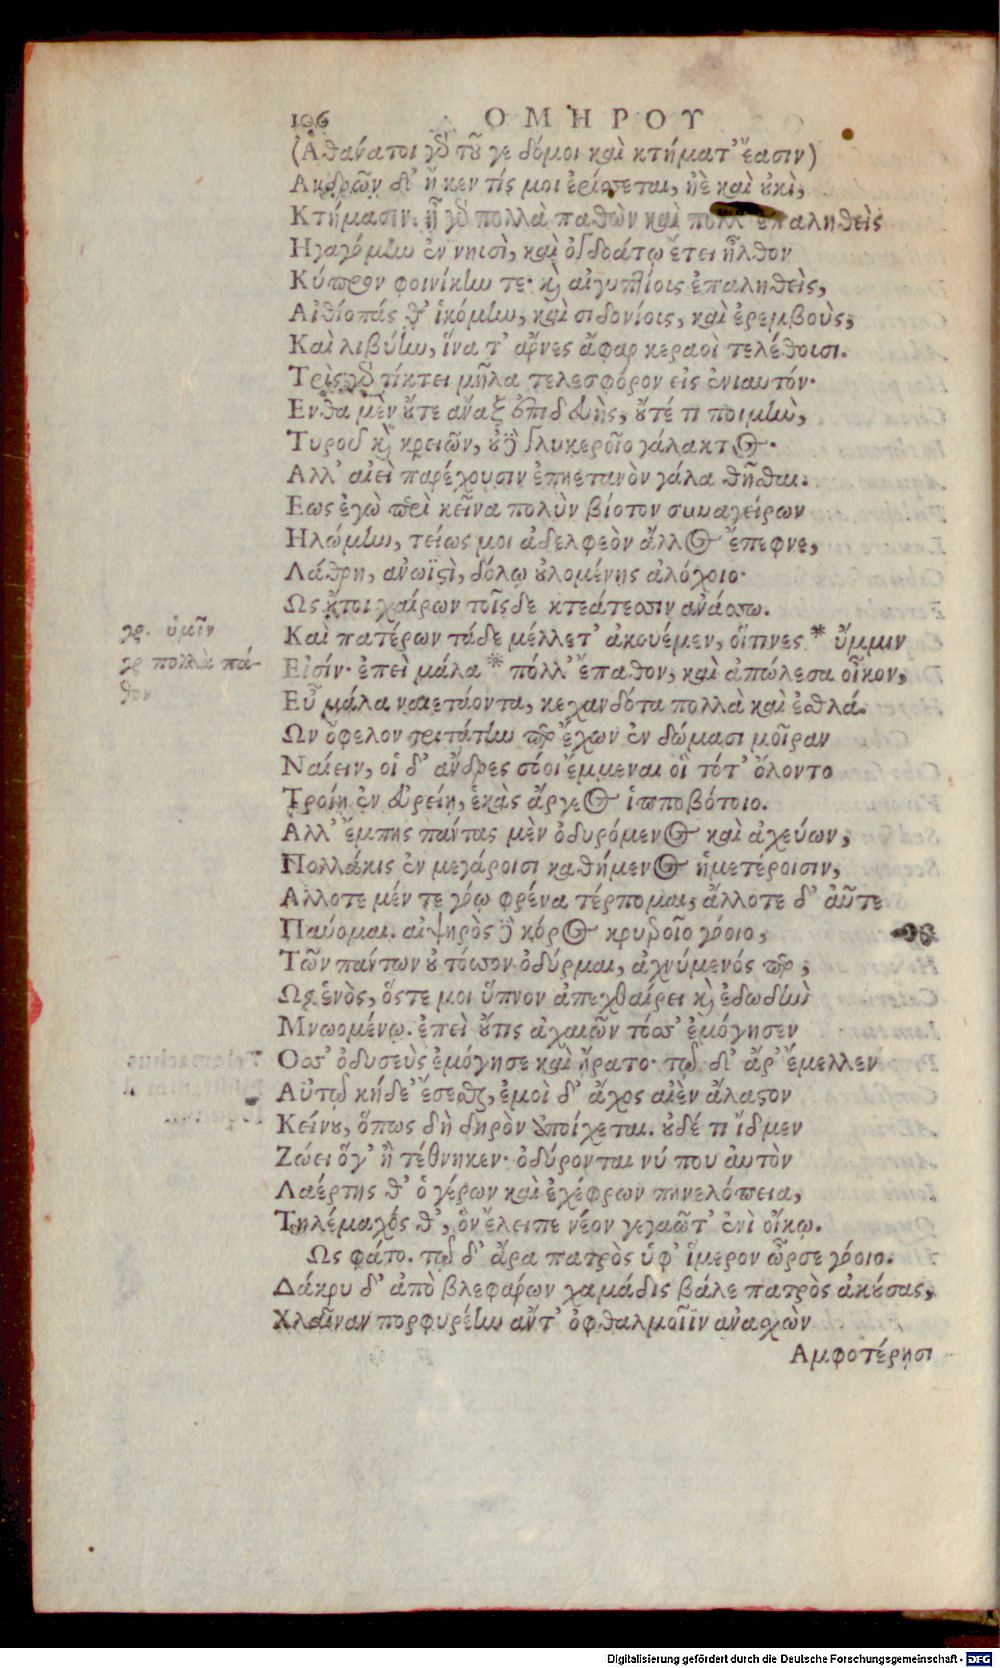 106 ΟΜΗΡΟΥ
(Αθανατοι γδ τοῦ γε δόμοι καὶ κτήματ' ἔασιν)
Ανδρῶν δ' ἤ κεν τίς μοι ἐρίσσεται, ἠὲ καὶ οὐκὶ,
Κτήμασιν. ἦ γδ πολλὰ παθὼν καὶ πολλ' ἐπαληθεὶς
Ηγαγόμην ἐν νηισὶ, καὶ ὀγδοάτῳ ἔτει ἦλθον
Κύπρον φοινίκην τε· κὶ αἰγυπτίοις ἐπαληθεὶς,
Αἰθίοπάς θ' ἱκόμην, καὶ σιδονίοις, καὶ ἐρεμβοὺς,
Καὶ λιβύην, ἵνα τ' ἄρνες ἄφαρ κεραοὶ τελέθουσι.
Τρὶς γδ τίκτει μῆλα τελεσφόρον εἰς ἐνιαυτόν·
Ενθα μὲν οὔτε ἄναξ ἐπιδευὴς, οὔτέ τι ποιμὴν,
Τυροῦ κὶ κρειῶν, οὐδὲ γλυκεροῖο γάλακτος.
Αλλ' αἰεὶ παρέχουσιν ἐπηετανὸν γάλα θῆσθαι.
Εως ἐγὼ περὶ κεῖνα πολὺν βίοτον συναγείρων
Ηλώμην, τείως μοι ἀδελφεὸν ἄλλος ἔπεφνε,
Λάθρη, ἀνωϊστὶ, δόλῳ οὐλομένης ἀλόχοιο·
Ως οὔτοι χαίρων τοῖσδε κτεάτεσσιν ἀνάσσω.
γρ. ὑμῖν Καὶ πατέρων τάδε μέλλετ' ἀκουέμεν, οἵτινες * ὔμμιν
γρ πολλὰ πά- Εἰσίν· ἐπεὶ μάλα * πόλλ' ἔπαθον, καὶ ἀπώλεσα οἶκον,
θον Εὖ μάλα ναιετάοντα, κεχανδότα πολλὰ καὶ ἐσθλά.
Ων ὄφελον τριτάτην περ ἔχων ἐν δώμασι μοῖραν
Ναίειν, οἱ δ' ἄνδρες σόοι ἔμμεναι οἳ τότ' ὄλοντο
Τροίῃ ἐν εὐρείῃ, ἑκὰς ἄργεος ἱπποβότοιο.
Αλλ' ἔμπης πάντας μὲν ὀδυρόμενος καὶ ἀχεύων,
Πολλάκις ἐν μεγάροισι καθήμενος ἡμετέροισιν,
Αλλοτε μέν τε γόῳ φρένα τέρπομαι, ἄλλοτε δ' αὖτε
Παύομαι. αἰψηρὸς δὲ κόρος κρυεροῖο γόοιο,
Τῶν πάντων οὐ τόσσον ὀδύρμαι, ἀχνύμενός περ,
Ως ἑνὸς, ὅστε μοι ὕπνον ἀπεχθαίρει κὶ ἐδωδὴν
Μνωομένῳ. ἐπεὶ οὔτις ἀχαιῶν τόσσ' ἐμόγησεν
Οσσ' ὀδυσεὺς ἐμόγησε καὶ ἤρατο· τῷ δ' ἄρ' ἔμελλεν
Αὐτῷ κήδε' ἔσεσθαι, ἐμοὶ δ' ἄχος αἰὲν ἄλαστον
Κείνου, ὅπως δὴ δηρὸν ἀποίχεται. οὐδέ τι ἴδμεν
Ζώει ὅγ' ἢ τέθνηκεν· ὀδύρονται νύ που αὐτὸν
Λαέρτης θ' ὁ γέρων καὶ ἐχέφρων πηνελόπεια,
Τηλέμαχός θ', ὃν ἔλειπε νέον γεγαῶτ' ἐνὶ οἴκῳ.
Ως φάτο. τῷ δ' ἄρα πατρὸς ὑφ' ἵμερον ὦρσε γόοιο.
Δάκρυ δ' ἀπὸ βλεφάρων χαμάδις βάλε πατρὸς ἀκούσας,
Χλαῖναν πορφυρέην ἄντ' ὀφθαλμοῖϊν ἀνασχὼν
Αμφοτέρῃσι
Digitalisierung gefördert durch die Deutsche Forschungsgemeinschaft - DFG